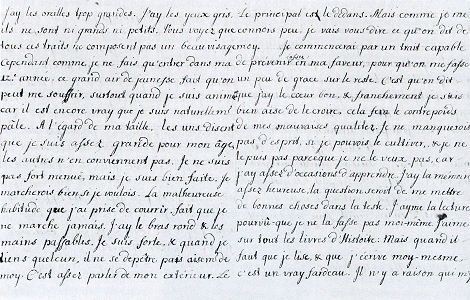 J'ay les oreilles trop grandes. J'ay les yeux gris.
ils ne sont ni grands ni petits. Vous voyez que
tous ces traits ne composent pas un beau visage.
Cependant comme je ne fais qu'entrer dans ma
12.e année, ce grand air de jeunesse fait qu'on
peut me souffrir, surtout quand je suis animée
car il est encore vray que je suis naturellemt
pâle. A l'égard de ma taille, les uns disent
que je suis assez grande pour mon âge,
les autres n'en conviennent pas. Je ne suis
pas fort menuë, mais je suis bien faite. Je
marcherois bien si je voulois. La malheureuse
habitude que j'ai prise de courrir, fait que je
ne marche jamais. J'ay le bras rond & les
mains passables. Je suis forte, & quand je
tiens quelcun, il ne se depêtre pas aisem.t de
moy. C'est assez parler de mon exterieur. Le
Le principal est le dedans. Mais comme je me
connois peu, je vais vous dire ce qu'on dit de
moy. Je commencerai par un trait capable
de prevenir en ma faveur, pour qu'on me fasse
un peu de grace sur le reste. C'est qu'on dit
que j'ay le cœur bon, & franchement je suis
bien aise de le croire, cela fera le contrepoids
de mes mauvaises qualitez. Je ne manquerois
pas d'esprit, si je pouvois le cultiver, & je ne
le puis pas parceque je ne le veux pas, car
j'ay assez d'occasions d'apprendre. J'ay la mémoire
assez heureuse, la question seroit de me mettre
de bonnes choses dans la teste. J'ayme la lecture
pourvû que je ne la fasse pas moi-même. J'aime
sur tout les livres d'Histoire. Mais quand il
faut que je lise, & que j'écrive moy-mesme,
c'est un vray fardeau. Il n'y a raison que